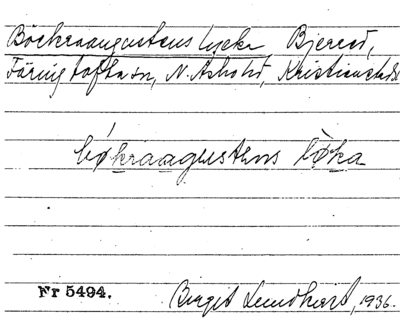 Böckraaugustens lycka Bjered,
Färingtofta sn, N. Åsbo hd, Kristianstads
bókraagustens lỏka
Nr 5494. Birgit Lundkvist, 1936.